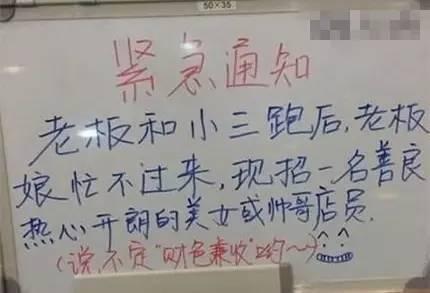 50×35
紧急通知
老板和小三跑后,老板
娘忙不过来,现招一名善良
热心开朗的美女或帅哥店员.
(说不定“财色兼收”哟~)